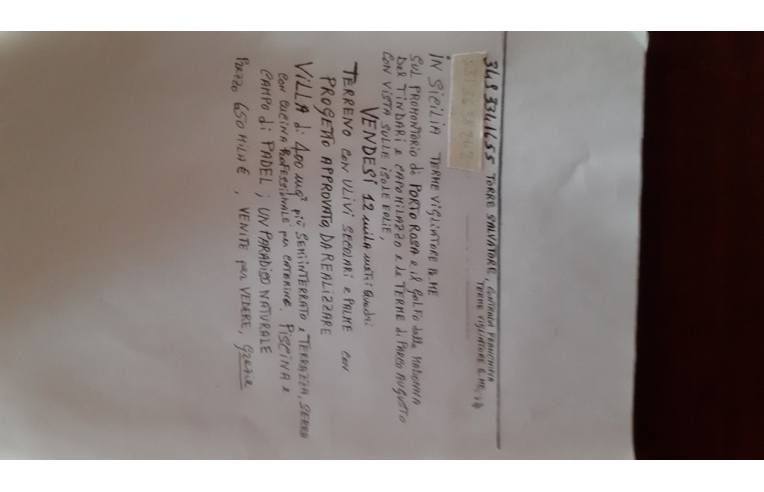 349 3341655 TORRE SALVATORE, CONTRADA FRANCHINA
TERME VIGLIATORE
IN SICILIA TERME VIGLIATORE
SUL PROMONTORIO di PORTO ROSA e il GOLFO della MADONNA
DEL TINDARI e CAPO MILAZZO e le TERME di PARCO AUGUSTO
CON VISTA SULLE ISOLE EOLIE,
VENDESI 12 mila metri Quadri
TERRENO con ULIVI SECOLARI e PALME con
PROGETTO APPROVATO, DA REALIZZARE
VILLA di 400 mq² più SEMINTERRATO e TERRAZZA, SERRA
con CUCINA PROFESSIONALE per CATERING. PISCINA e
CAMPO di PADEL; UN PARADISO NATURALE
PREZZO 650 MILA €, VENITE per VEDERE, grazie